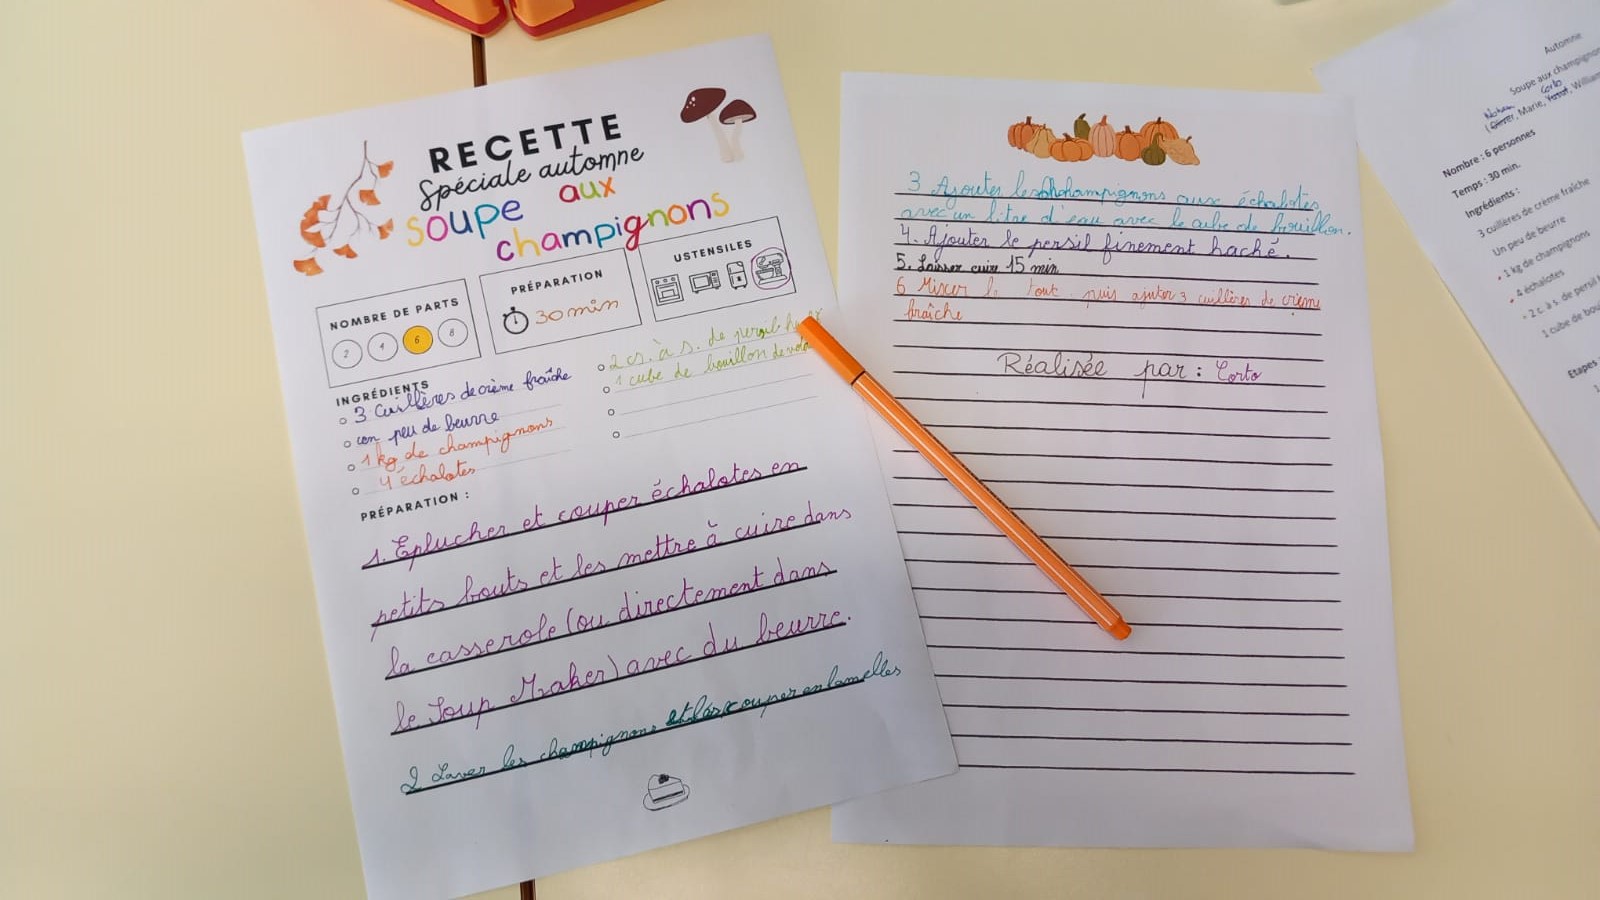 RECETTE
Spéciale automne
soupe aux
champignons
NOMBRE DE PARTS
2 4 6 8
PRÉPARATION
30 min
USTENSILES
INGRÉDIENTS
3 cuillères de crème fraîche
un peu de beurre
1 kg de champignons
4 échalotes
2 c. à s. de persil
1 cube de bouillon de
PRÉPARATION :
1. Eplucher et couper échalotes en
petits bouts et les mettre à cuire dans
la casserole (ou directement dans
le Soup Maker) avec du beurre.
2 Laver les champignons et les couper en lamelles
3 Ajouter les champignons aux échalotes
avec un litre d'eau avec le cube de bouillon.
4. Ajouter le persil finement haché.
5. Laisser cuire 15 min
6 Mixer le tout puis ajouter 3 cuillères de crème
fraîche
Réalisée par : Corto
Automne
Soupe aux champignon
Corto
Marie, William
Nombre : 6 personnes
Temps : 30 min.
Ingrédients :
3 cuillères de crème fraîche
Un peu de beurre
1 kg de champignons
4 échalotes
2 c. à s. de persil
1 cube de bou
Etapes :